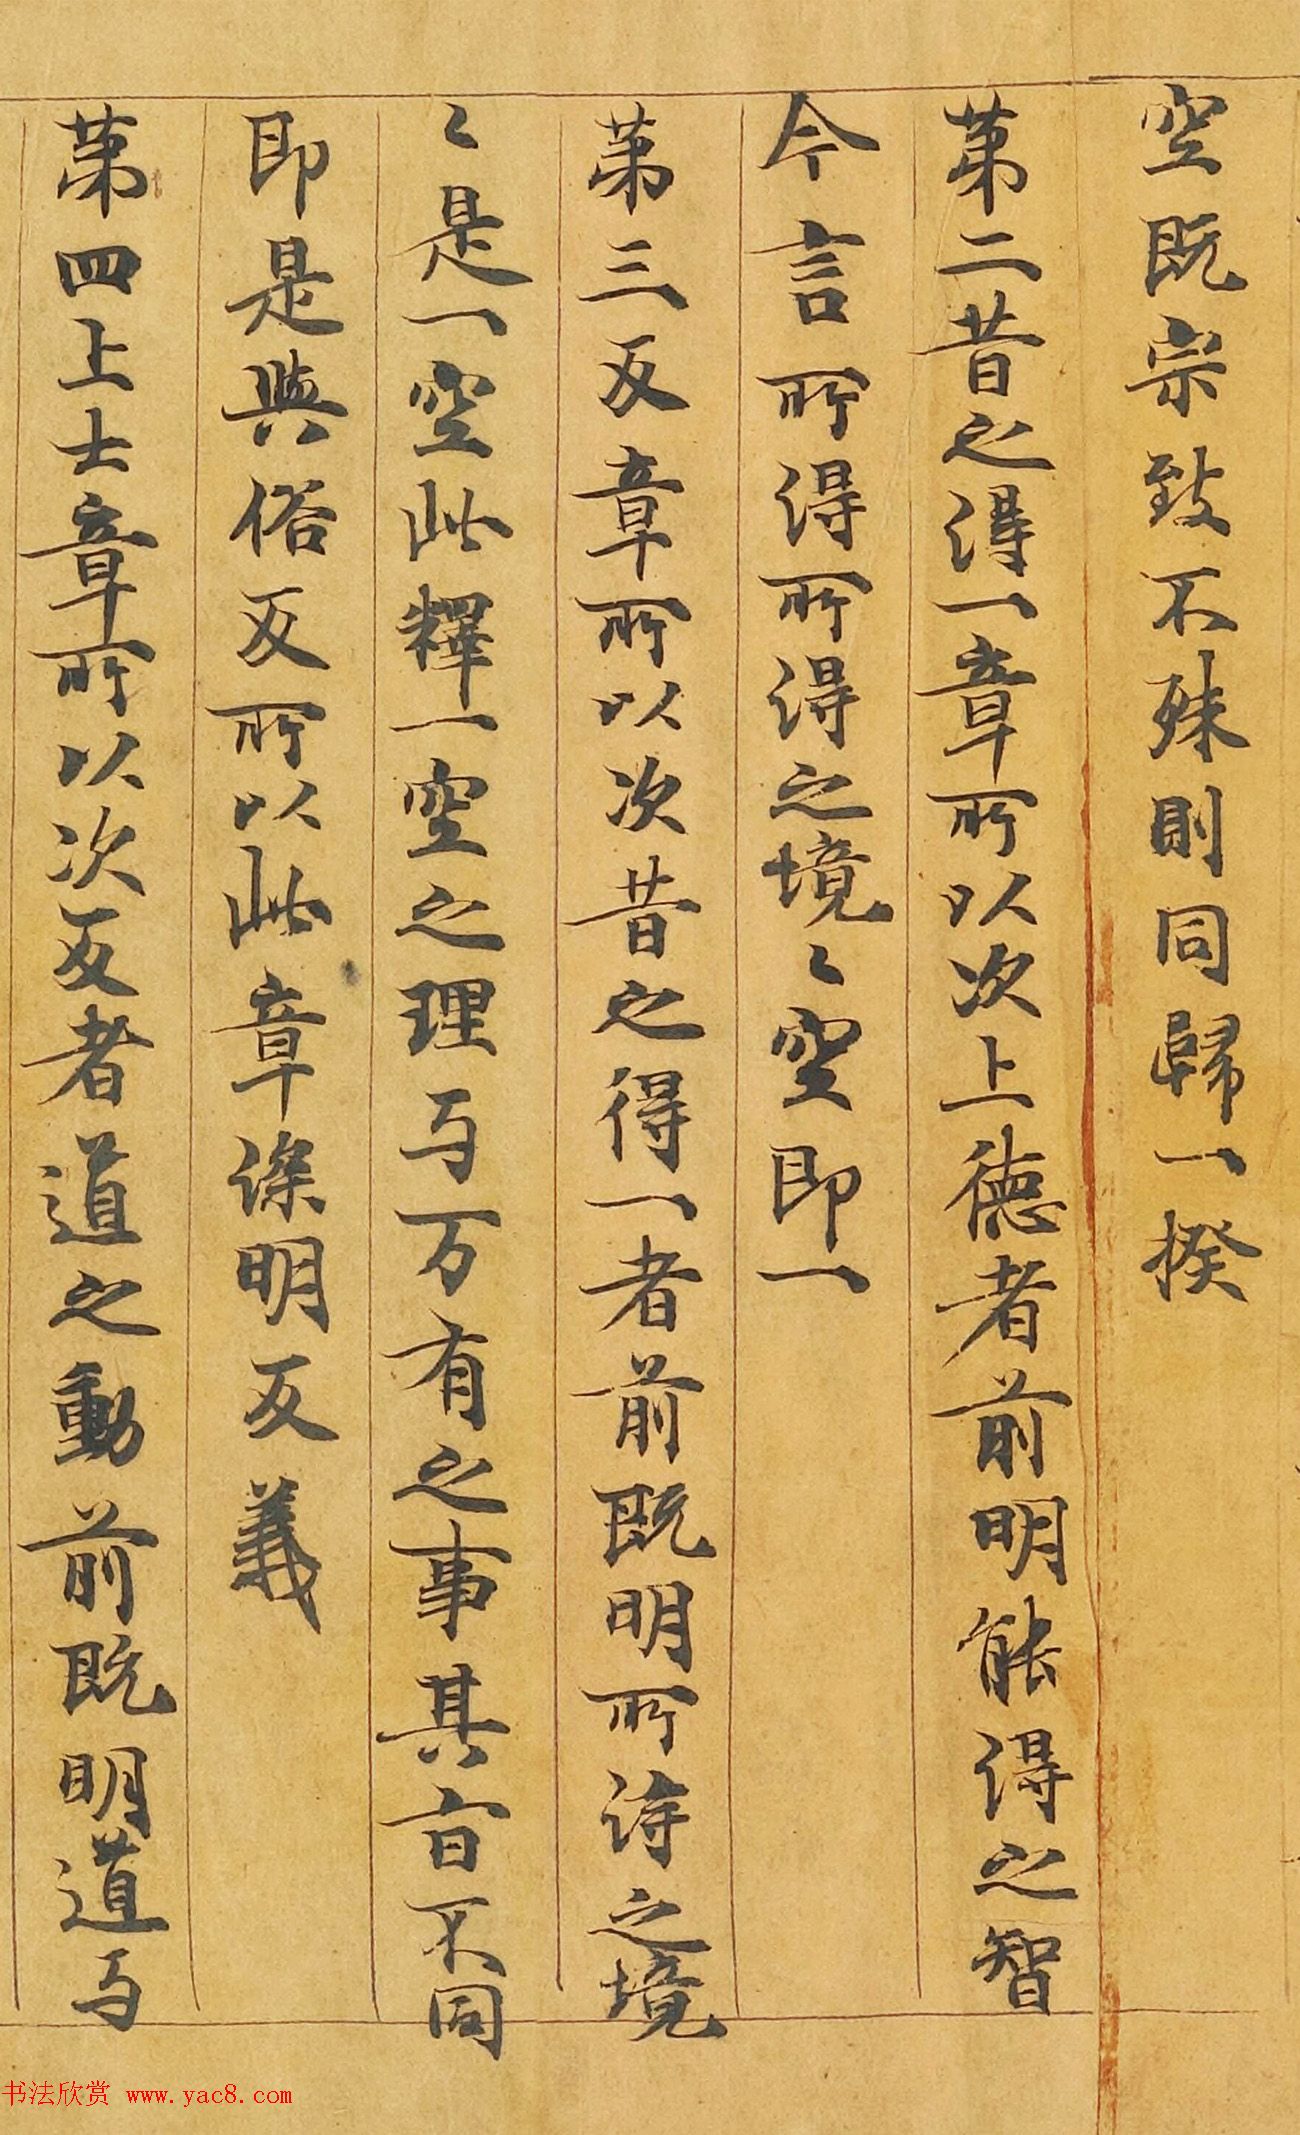 空既宗致不殊則同歸一揆
苐二昔之得一章所以次上德者前明能得之智
今言所得所得之境〻空即一
苐三反章所以次昔之得一者前既明所詣之境
〻是一空此釋一空之理与万有之事其旨不同
即是與俗反所以此章深明反義
苐四上士章所以次反者道之動前既明道与
书法欣赏 www.yac8.com